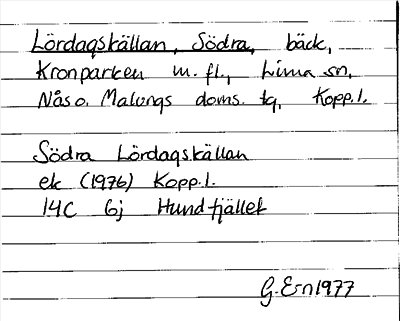 Lördagskällan, Södra, bäck,
Kronparken m. fl., Lima sn,
Nås o. Malungs doms. tg, Kopp. l.
Södra Lördagskällan
ek (1976) Kopp. l.
14C 6j Hundfjället
G. Ern 1977